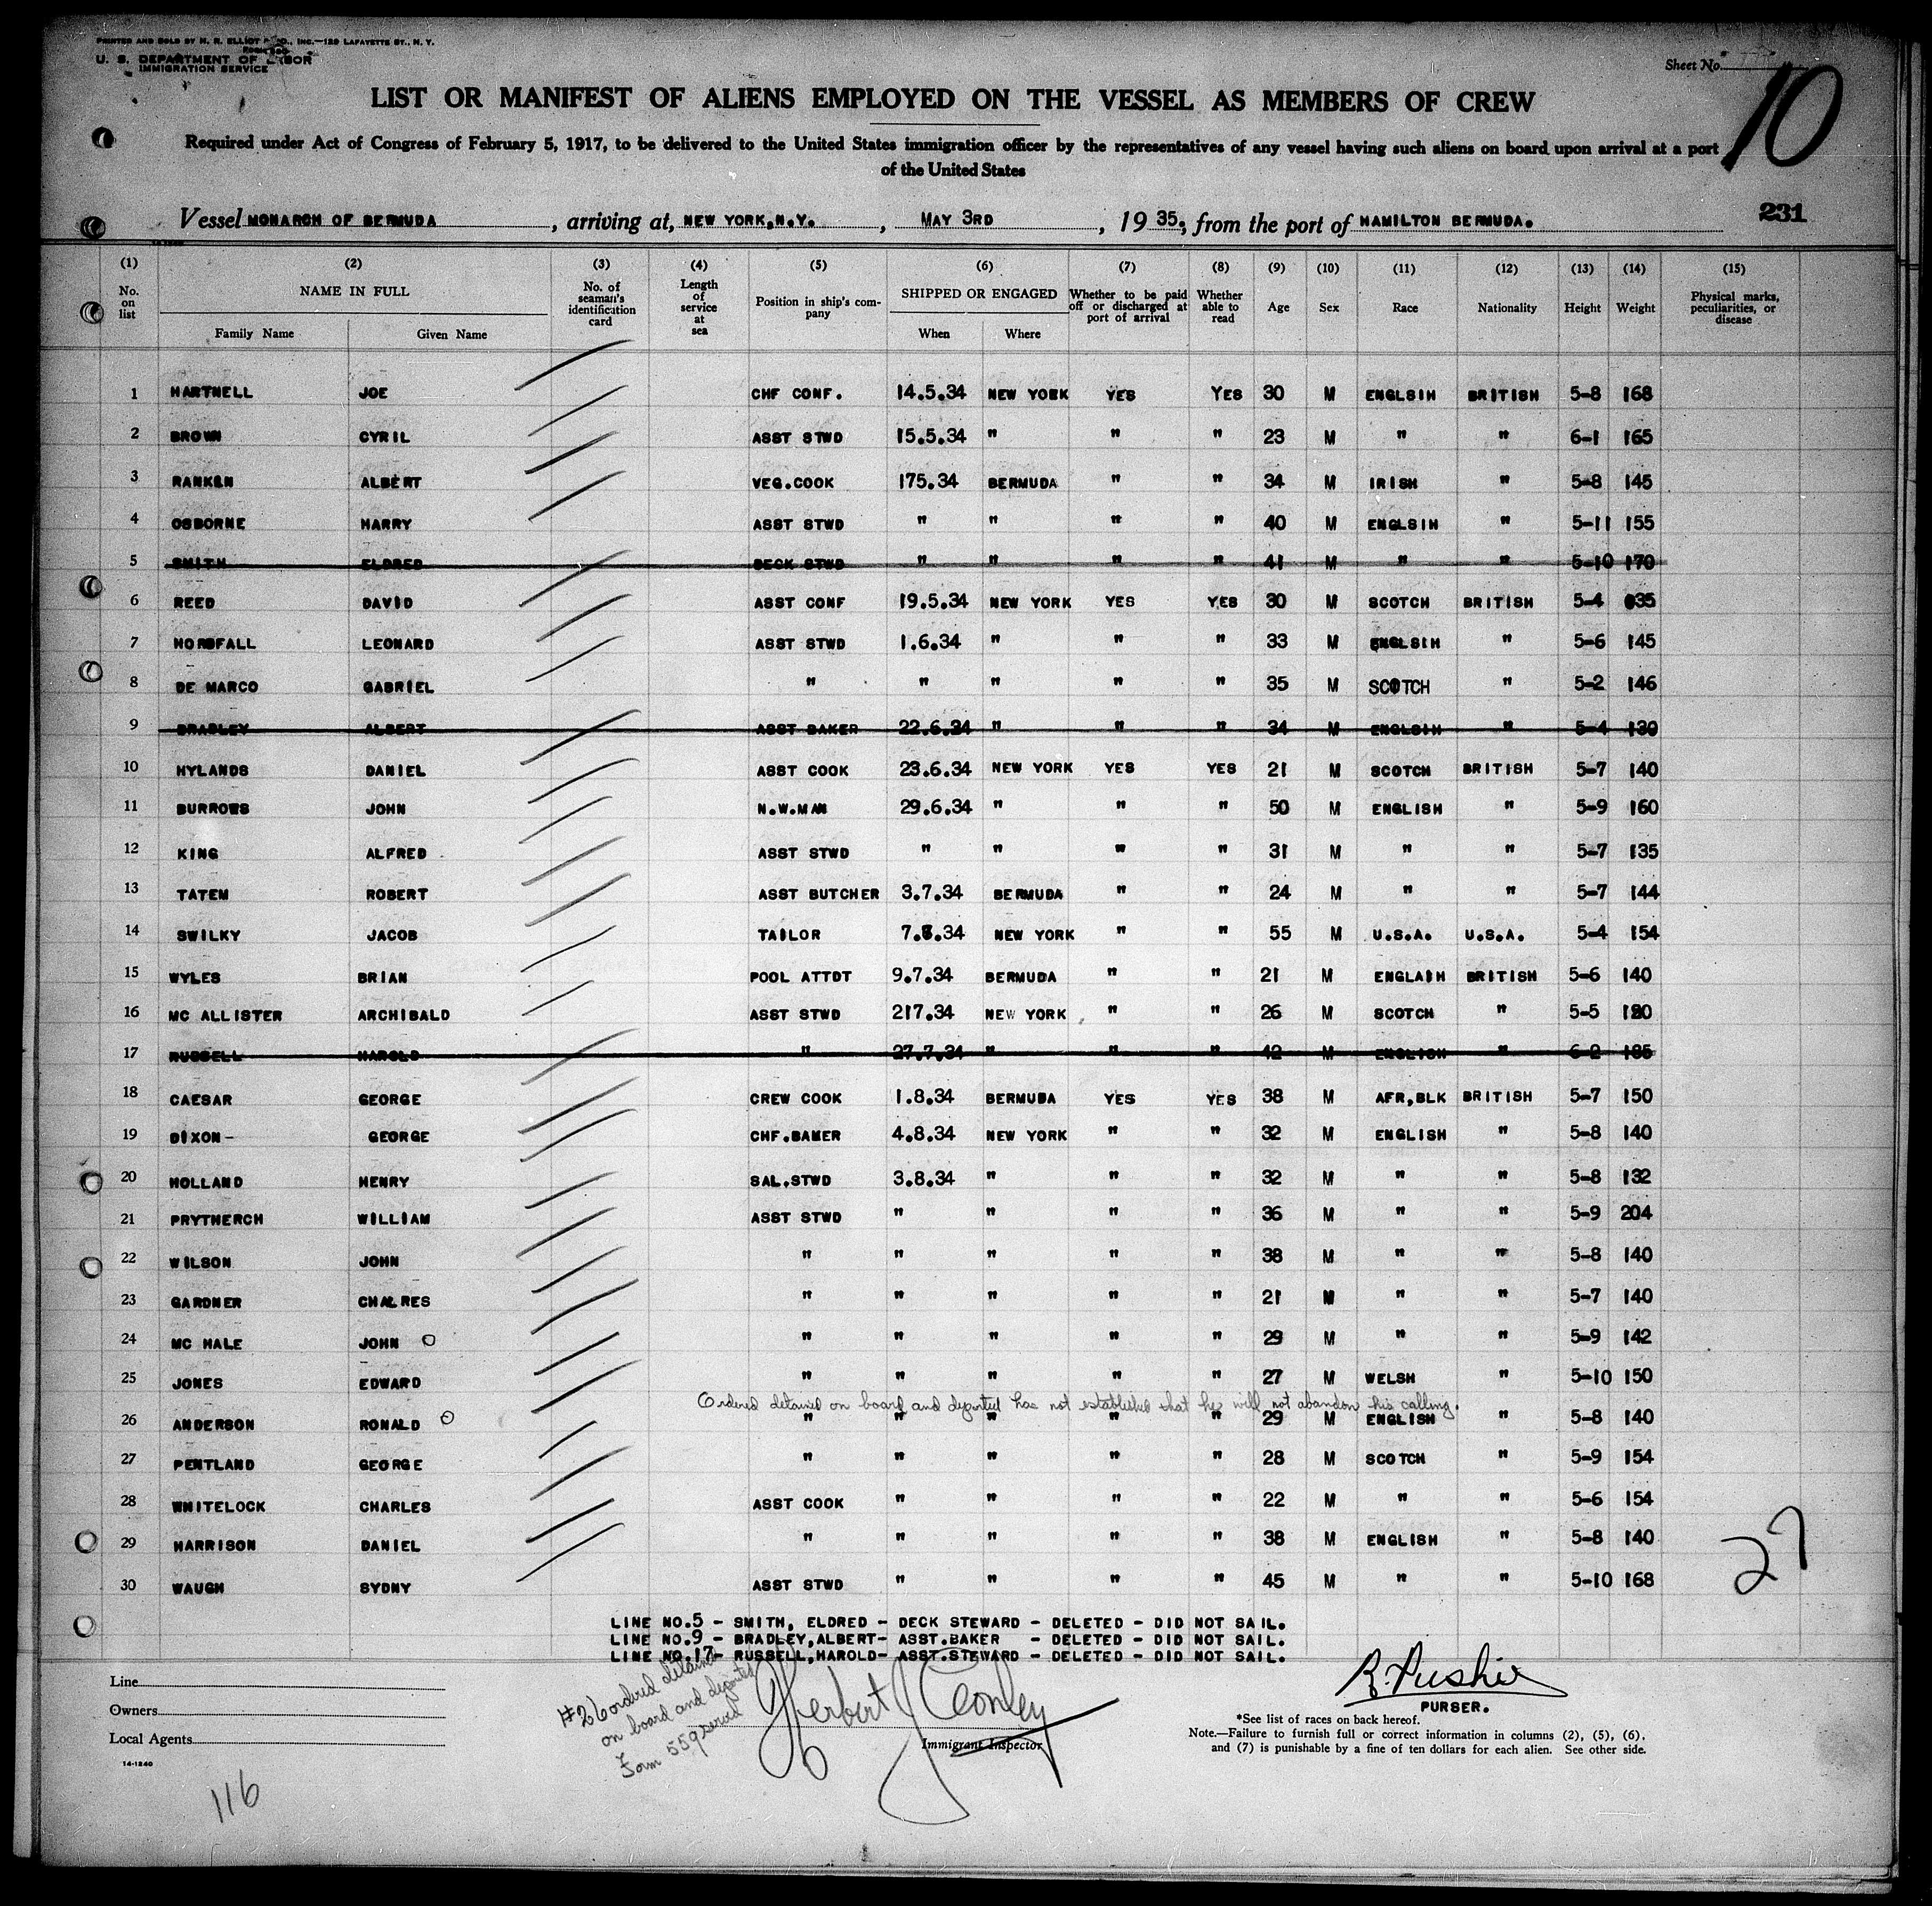 PRINTED AND SOLD BY H. R. ELLIOT & CO., INC.—129 LAFAYETTE ST., N. Y.
U. S. DEPARTMENT OF LABOR
IMMIGRATION SERVICE
Sheet No.
10
LIST OR MANIFEST OF ALIENS EMPLOYED ON THE VESSEL AS MEMBERS OF CREW
Required under Act of Congress of February 5, 1917, to be delivered to the United States immigration officer by the representatives of any vessel having such aliens on board upon arrival at a port
of the United States
231
Vessel MONARCH OF BERMUDA, arriving at, NEW YORK,N.Y., MAY 3RD, 19 35, from the port of HAMILTON BERMUDA.
(1) (2) (3) (4) (5) (6) (7) (8) (9) (10) (11) (12) (13) (14) (15)
No. on list NAME IN FULL Family Name Given Name No. of seaman's identification card Length of service at sea Position in ship's company SHIPPED OR ENGAGED When Where Whether to be paid off or discharged at port of arrival Whether able to read Age Sex Race Nationality Height Weight Physical marks, peculiarities, or disease
1 HARTNELL JOE CHF CONF. 14.5.34 NEW YORK YES YES 30 M ENGLSIH BRITISH 5-8 168
2 BROWN CYRIL ASST STWD 15.5.34 " " " 23 M " " 6-1 165
3 RANKEN ALBERT VEG.COOK 175.34 BERMUDA " " 34 M IRISH " 5-8 145
4 OSBORNE HARRY ASST STWD " " " " 40 M ENGLSIH " 5-11 155
5 SMITH ELDRED DECK STWD " " " " 41 M " " 5-10 170
6 REED DAVID ASST CONF 19.5.34 NEW YORK YES YES 30 M SCOTCH BRITISH 5-4 135
7 HORSFALL LEONARD ASST STWD 1.6.34 " " " 33 M ENGLSIH " 5-6 145
8 DE MARCO GABRIEL " " " " " 35 M SCOTCH " 5-2 146
9 BRADLEY ALBERT ASST BAKER 22.6.34 " " " 34 M ENGLSIH " 5-4 130
10 HYLANDS DANIEL ASST COOK 23.6.34 NEW YORK YES YES 21 M SCOTCH BRITISH 5-7 140
11 BURROWS JOHN N.W.MAN 29.6.34 " " " 50 M ENGLISH " 5-9 160
12 KING ALFRED ASST STWD " " " " 31 M " " 5-7 135
13 TATEM ROBERT ASST BUTCHER 3.7.34 BERMUDA " " 24 M " " 5-7 144
14 SWILKY JACOB TAILOR 7.34 NEW YORK " " 55 M U.S.A. U.S.A. 5-4 154
15 WYLES BRIAN POOL ATTDT 9.7.34 BERMUDA " " 21 M ENGLAIH BRITISH 5-6 140
16 MC ALLISTER ARCHIBALD ASST STWD 217.34 NEW YORK " " 26 M SCOTCH " 5-5
17 RUSSELL HAROLD " 27.7.34 " " " 42 M ENGLISH " 6-2 185
18 CAESAR GEORGE CREW COOK 1.8.34 BERMUDA YES YES 38 M AFR,BLK BRITISH 5-7 150
19 DIXON- GEORGE CHF.BAKER 4.8.34 NEW YORK " " 32 M ENGLISH " 5-8 140
20 HOLLAND HENRY SAL.STWD 3.8.34 " " " 32 M " " 5-8 132
21 PRYTHERCH WILLIAM ASST STWD " " " " 36 M " " 5-9 204
22 WILSON JOHN " " " " " 38 M " " 5-8 140
23 GARDNER CHALRES " " " " " 21 M " " 5-7 140
24 MC HALE JOHN O " " " " " 29 M " " 5-9 142
25 JONES EDWARD " " " " " 27 M WELSH " 5-10 150
Ordered detained on board and deported has not established that he will not abandon his calling.
26 ANDERSON RONALD O " " " " " 29 M ENGLISH " 5-8 140
27 PENTLAND GEORGE " " " " " 28 M SCOTCH " 5-9 154
28 WHITELOCK CHARLES ASST COOK " " " " 22 M " " 5-6 154
29 HARRISON DANIEL " " " " " 38 M ENGLISH " 5-8 140
30 WAUGH SYDNY ASST STWD " " " " 45 M " " 5-10 168
27
LINE NO.5 - SMITH, ELDRED - DECK STEWARD - DELETED - DID NOT SAIL.
LINE NO.9 - BRADLEY,ALBERT- ASST.BAKER - DELETED - DID NOT SAIL.
LINE NO.17- RUSSELL,HAROLD- ASST.STEWARD - DELETED - DID NOT SAIL.
Line
Owners
Local Agents
14-1240
116
#26 ordered detained
on board and deported
Form 559 served
Herbert J Conley
Immigrant Inspector
PURSER.
*See list of races on back hereof.
Note.—Failure to furnish full or correct information in columns (2), (5), (6),
and (7) is punishable by a fine of ten dollars for each alien. See other side.